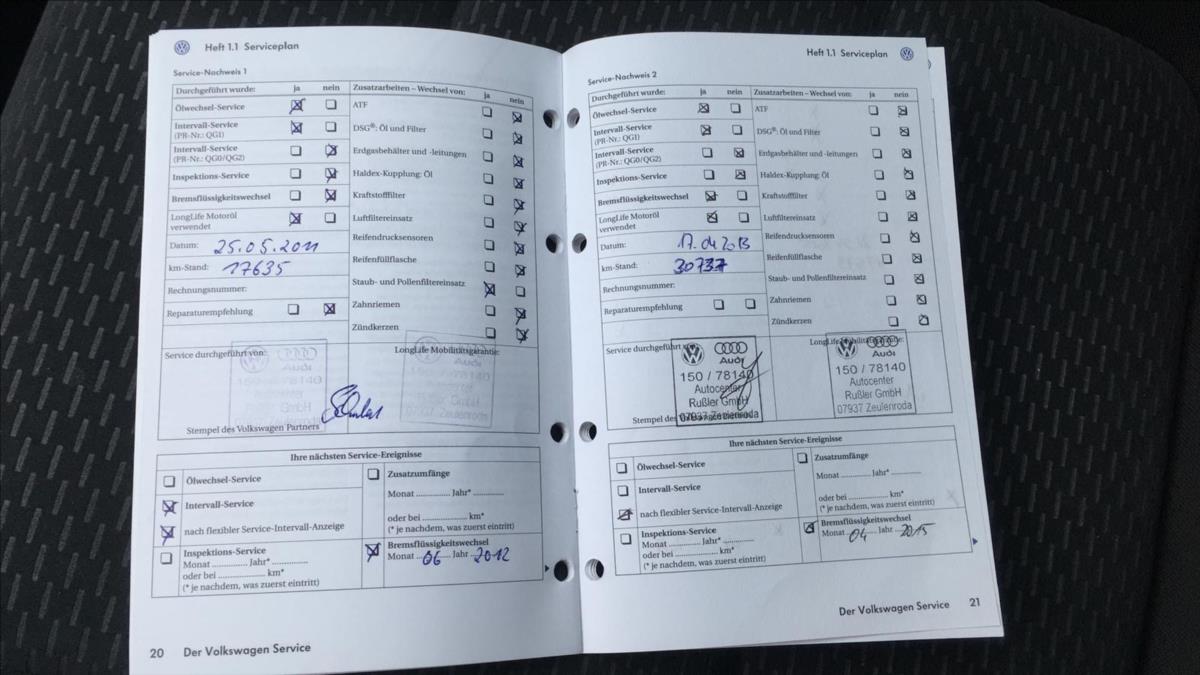 Heft 1.1 Serviceplan
Service-Nachweis 1
Durchgeführt wurde: ja nein
Ölwechsel-Service
Intervall-Service
(PR-Nr.: QG1)
Intervall-Service
(PR-Nr.: QG0/QG2)
Inspektions-Service
Bremsflüssigkeitswechsel
LongLife Motoröl
verwendet
Datum: 25.05.2011
km-Stand: 17635
Rechnungsnummer:
Reparaturempfehlung
Zusatzarbeiten – Wechsel von: ja nein
ATF
DSG®: Öl und Filter
Erdgasbehälter und -leitungen
Haldex-Kupplung: Öl
Kraftstofffilter
Luftfiltereinsatz
Reifendrucksensoren
Reifenfüllflasche
Staub- und Pollenfiltereinsatz
Zahnriemen
Zündkerzen
Service durchgeführt von:
LongLife Mobilitätsgarantie:
Audi
150 / 78140
GmbH
Audi
07937 Zeulenroda
Stempel des Volkswagen Partners
Ihre nächsten Service-Ereignisse
Ölwechsel-Service
Intervall-Service
nach flexibler Service-Intervall-Anzeige
Inspektions-Service
Monat .............. Jahr* ..............
oder bei .............. km*
(* je nachdem, was zuerst eintritt)
Zusatzumfänge
Monat .............. Jahr* ..............
oder bei .............. km*
(* je nachdem, was zuerst eintritt)
Bremsflüssigkeitswechsel
Monat 06 Jahr 2012
20 Der Volkswagen Service
Heft 1.1 Serviceplan
Service-Nachweis 2
Durchgeführt wurde: ja nein
Ölwechsel-Service
Intervall-Service
(PR-Nr.: QG1)
Intervall-Service
(PR-Nr.: QG0/QG2)
Inspektions-Service
Bremsflüssigkeitswechsel
LongLife Motoröl
verwendet
Datum: 17.04.2013
km-Stand: 30737
Rechnungsnummer:
Reparaturempfehlung
Zusatzarbeiten – Wechsel von: ja nein
ATF
DSG®: Öl und Filter
Erdgasbehälter und -leitungen
Haldex-Kupplung: Öl
Kraftstofffilter
Luftfiltereinsatz
Reifendrucksensoren
Reifenfüllflasche
Staub- und Pollenfiltereinsatz
Zahnriemen
Zündkerzen
Service durchgeführt von:
Audi
150 / 78140
Autocenter
Rußler GmbH
07937 Zeulenroda
Stempel des
LongLife Mobilitätsgarantie:
Audi
150 / 78140
Autocenter
Rußler GmbH
07937 Zeulenroda
Ihre nächsten Service-Ereignisse
Ölwechsel-Service
Intervall-Service
nach flexibler Service-Intervall-Anzeige
Inspektions-Service
Monat .............. Jahr* ..............
oder bei .............. km*
(* je nachdem, was zuerst eintritt)
Zusatzumfänge
Monat .............. Jahr* ..............
oder bei .............. km*
(* je nachdem, was zuerst eintritt)
Bremsflüssigkeitswechsel
Monat 04 Jahr 2015
Der Volkswagen Service 21